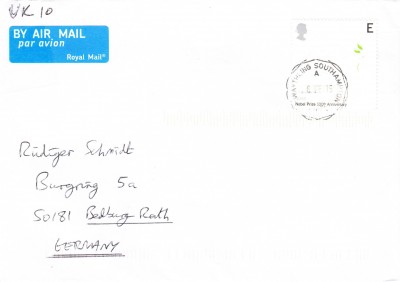 UK 10
BY AIR MAIL
par avion
Royal Mail®
E
SOUTHAMPTON
A
Nobel Prize 100th Anniversary
Rüdiger Schmidt
Burgring 5a
50181 Bedburg Rath
GERMANY